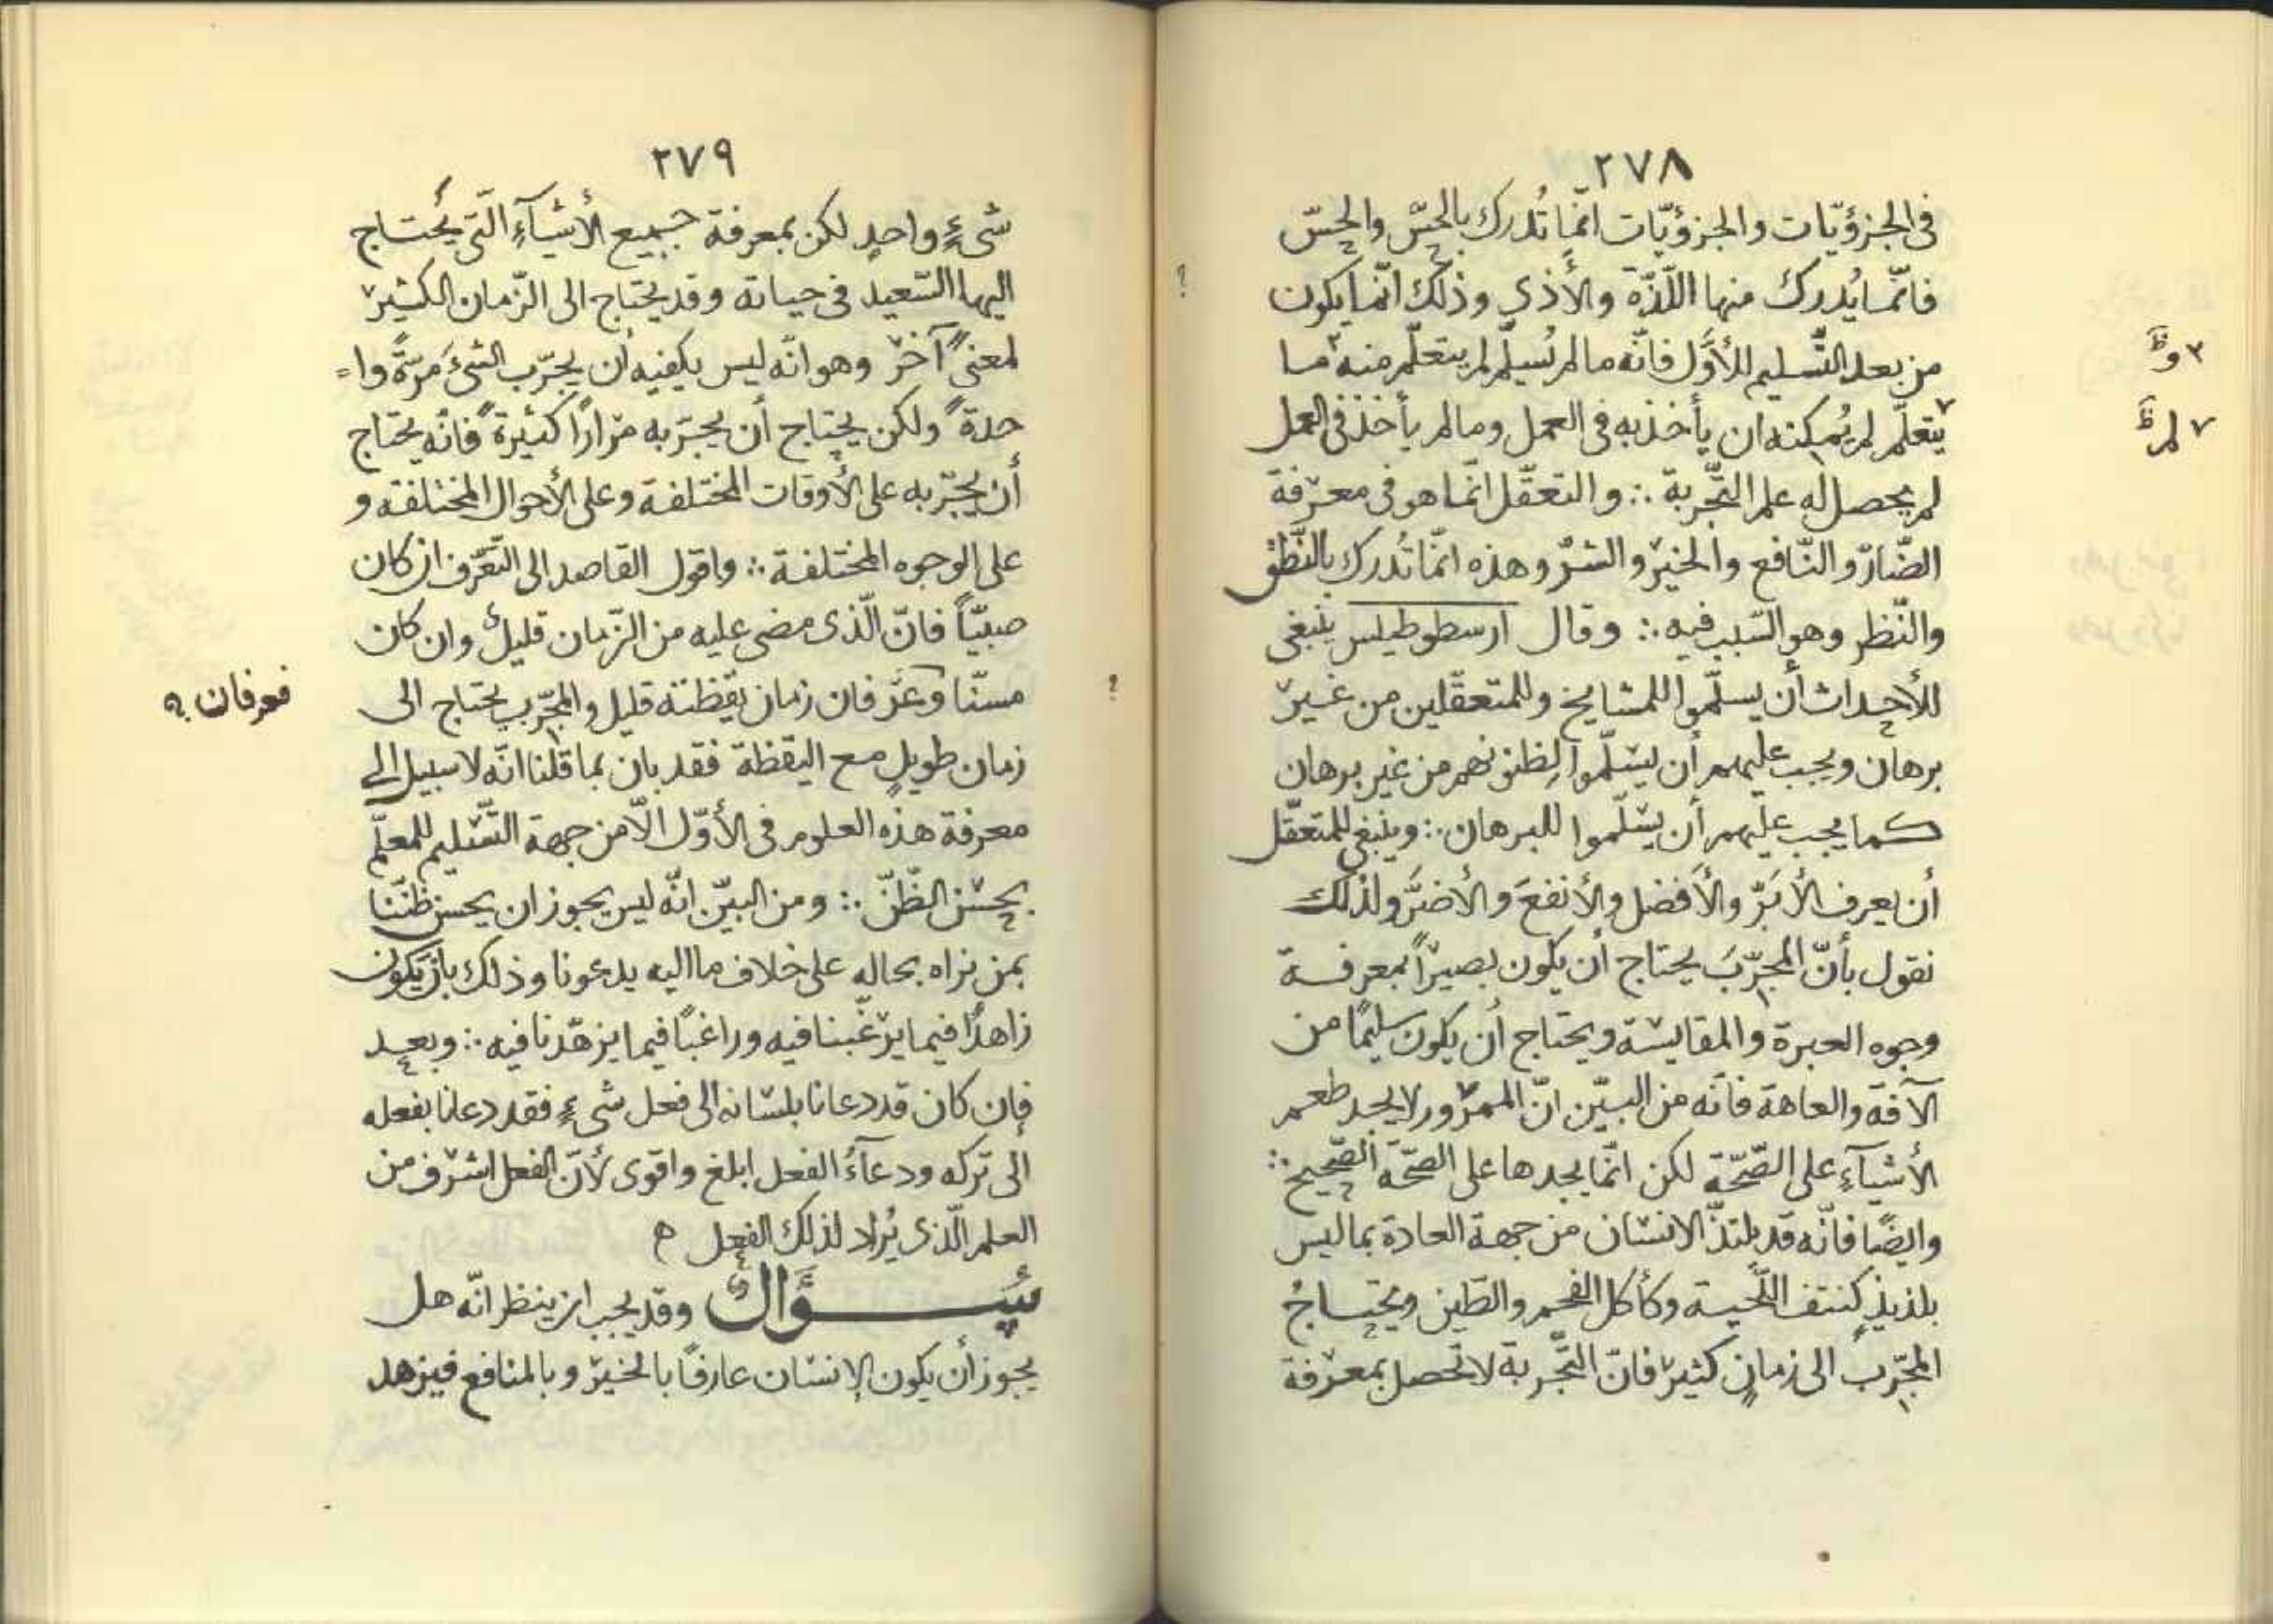 ٢٧٨
فى الجزؤيّات والجزؤيّات انّما تُدرك بالحسّ والحسّ
فانّما يُدرك منها اللّذّة والأذي وذلك انّما يكون
من بعد التّسليم للأوّل فانّه ما لم يُسلّم لم يتعلّم منه ما
٣ وظ
يتعلّم لم يُمكنه ان يأخذ به فى العمل وما لم يأخذ فى العمل
٧ لم ظ
لم يحصل له علم التّجربة ∴ والتعقّل انّما هو فى معرفة
الضّارّ والنّافع والخير والشرّ وهذه انّما تُدرك بالنّطق
والنّظر وهو السّبب فيه ∴ وقال ارسطوطيلس ينبغى
للأحداث أن يسلّموا للمشايخ وللمتعقّلين من غير
برهان ويجب عليهم أن يسلّموا لظنونهم من غير برهان
كما يجب عليهم أن يسلّموا للبرهان ∴ وينبغى للمتعقّل
أن يعرف الأبَرّ والأفضل والأنفعَ والأضرَّ ولذلك
نقول بأنّ المجرّبَ يحتاج أن يكون بصيراً بمعرفة
وجوه العبرة والمقايسة ويحتاج أن يكون سليمًا من
الآفة والعاهة فانّه من البيّن انّ الممرور لا يجد طعم
الأشيآءِ على الصّحّة لكن انّما يجدها على الصحّة الصّحيح ∴
وايضًا فانّه قد يلتذّ الانسان من جهة العادة بما ليس
بلذيذٍ كنتف اللّحية وكأكل الفحم والطّين ويحتاجُ
المجرّب الى زمانٍ كثير فانّ التّجربة لا تحصل بمعرفة
؟
٢٧٩
شىءٍ واحدٍ لكن بمعرفة جميع الأشيآءِ الّتى يُحتاج
اليها السّعيد فى حياته وقد يحتاج الى الزّمان الكثير
لمعنىً آخر وهو انّه ليس يكفيه أن يجرّب الشىءَ مَرّةً وا=
حدةً ولكن يحتاج أن يجرّبه مرارًا كثيرةً فانّه يحتاج
أن يجرّبه على الأوقات المختلفة وعلى الأحوال المختلفة و
على الوجوه المختلفة ∴ واقول القاصد الى التّعرّف ان كان
صبيّاً فانّ الّذى مضى عليه من الزّمان قليلٌ وان كان
مسنّا وعَرَفان زمان يقظته قليل والمجرّب يحتاج الى
؟
فعرفان ؟
زمان طويلٍ مع اليقظة فقد بان بما قلنا انّه لا سبيل الى
معرفة هذه العلوم فى الأوّل الّا من جهة التّسليم للمعلّم
بحسن الظّنّ ∴ ومن البيّن انّه ليس يجوز ان يحسن ظنّنا
بمن نراه بحاله على خلاف ما اليه يدعونا وذلك بأن يكون
زاهدًا فيما يرغّبنا فيه وراغبًا فيما يزهّدنا فيه ∴ وبعد
فإن كان قد دعانا بلسانه الى فعل شىءٍ فقد دعانا بفعله
الى تركه ودعآءُ الفعل ابلغ واقوى لأنّ الفعل اشرف من
العلم الّذى يُراد لذلك الفعل ه
سُؤَالٌ وقد يجب ان ينظر انّه هل
يجوز أن يكون الإنسان عارفاً بالخير وبالمنافع فيزهد